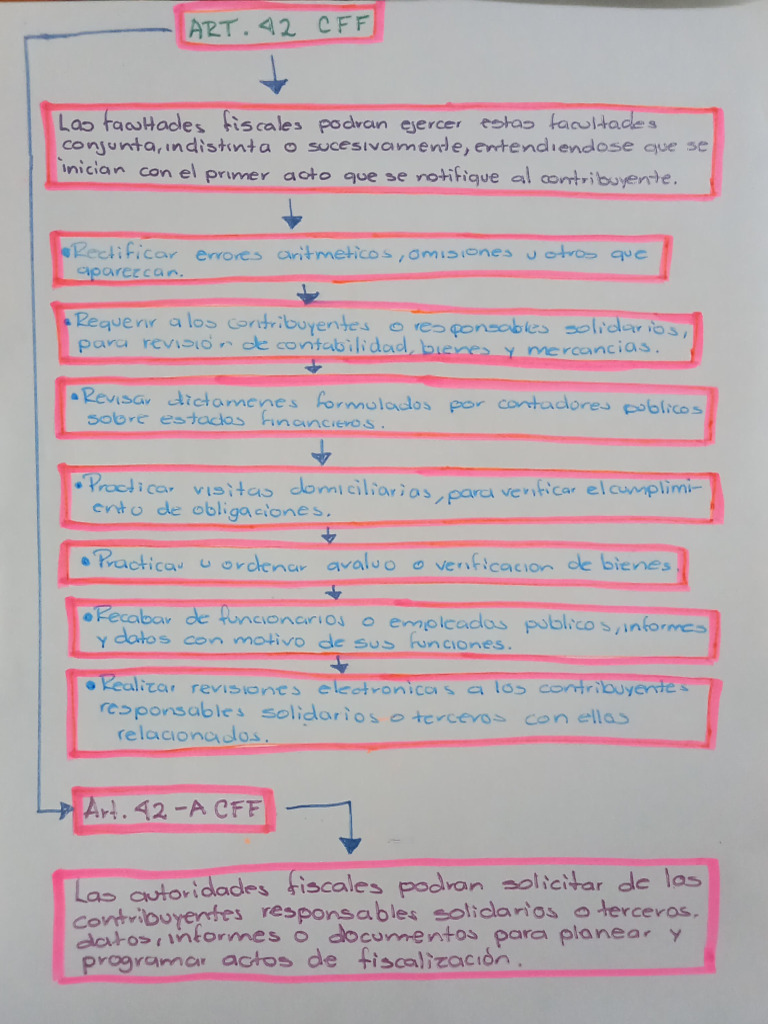 ART. 42 CFF
Las facultades fiscales podran ejercer estas facultades
conjunta, indistinta o sucesivamente, entendiendose que se
inician con el primer acto que se notifique al contribuyente.
•Rectificar errores aritmeticos, omisiones u otros que
aparezcan.
•Requerir a los contribuyentes o responsables solidarios,
para revisión de contabilidad, bienes y mercancias.
•Revisar dictamenes formulados por contadores publicos
sobre estados financieros.
•Practicar visitas domiciliarias, para verificar el cumplimi-
ento de obligaciones.
•Practicar u ordenar avaluo o verificacion de bienes.
•Recabar de funcionarios o empleados publicos, informes
y datos con motivo de sus funciones.
•Realizar revisiones electronicas a los contribuyentes
responsables solidarios o terceros con ellos
relacionados.
Art. 42-A CFF
Las autoridades fiscales podran solicitar de los
contribuyentes responsables solidarios o terceros.
datos, informes o documentos para planear y
programar actos de fiscalización.